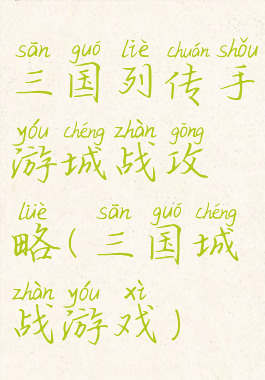 sān guó liè chuán shǒu
三国列传手
yóu chéng zhàn gōng
游城战攻
lüè sān guó chéng
略(三国城
zhàn yóu xì
战游戏)